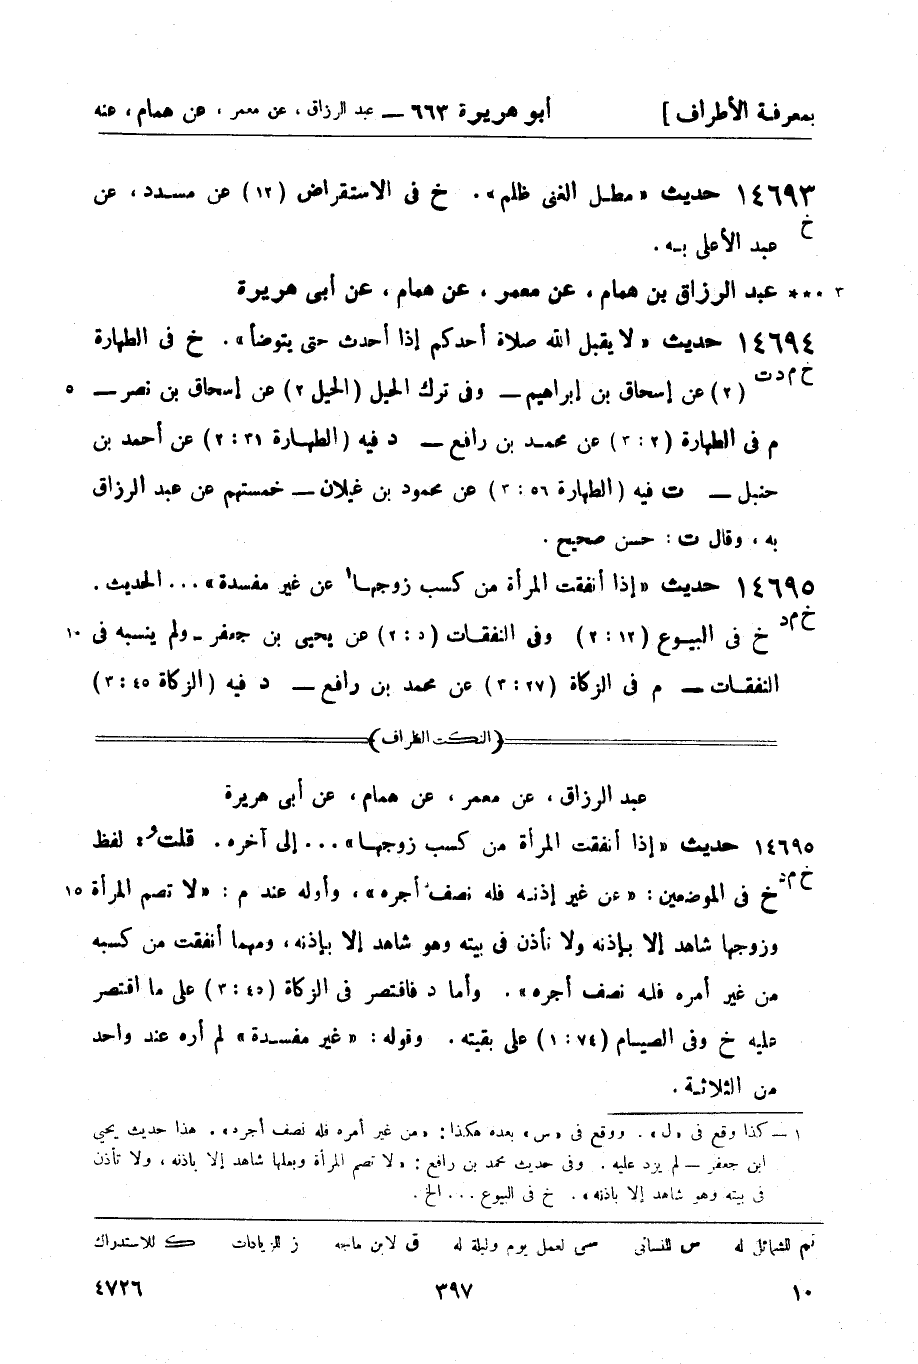 بمعرفة الأطراف] أبو هريرة ٦٦٣ — عبد الرزاق، عن معمر، عن همام، عنه
١٤٦٩٣ حديث «مطل الغنى ظلم». خ فى الاستقراض (١٢) عن مسدد، عن
خ
عبد الأعلى به.
٣ *** عبد الرزاق بن همام، عن معمر، عن همام، عن أبى هريرة
١٤٦٩٤ حديث «لا يقبل الله صلاة أحدكم إذا أحدث حتى يتوضأ». خ فى الطهارة
خ م د ت
(٢) عن إسحاق بن إبراهيم — وفى ترك الحيل (الحيل ٢) عن إسحاق بن نصر — ٥
م فى الطهارة (٢ : ٣) عن محمد بن رافع — د فيه (الطهارة ٣١ : ٢) عن أحمد بن
حنبل — ت فيه (الطهارة ٥٦ : ٣) عن محمود بن غيلان — خمستهم عن عبد الرزاق
به، وقال ت : حسن صحيح.
١٤٦٩٥ حديث «إذا أنفقت المرأة من كسب زوجها١ عن غير مفسدة»... الحديث.
خ م د
خ فى البيوع (١٢ : ٢) وفى النفقات (٥ : ٢) عن يحيى بن جعفر - ولم ينسبه فى ١٠
النفقات — م فى الزكاة (٢٧ : ٣) عن محمد بن رافع — د فيه (الزكاة ٤٥ : ٣)
(النكت الظراف)
عبد الرزاق، عن معمر، عن همام، عن أبى هريرة
١٤٦٩٥ حديث «إذا أنفقت المرأة من كسب زوجها»... إلى آخره. قلت: لفظ
خ م د
خ فى الموضعين: «عن غير إذنه فله نصف أجره»، وأوله عند م: «لا تصم المرأة ١٥
وزوجها شاهد إلا بإذنه ولا تأذن فى بيته وهو شاهد إلا بإذنه، ومهما أنفقت من كسبه
من غير أمره فله نصف أجره». وأما د فاقتصر فى الزكاة (٤٥ : ٣) على ما اقتصر
عليه خ وفى الصيام (٧٤ : ١) على بقيته. وقوله: «غير مفسدة» لم أره عند واحد
من الثلاثة.
١ — كذا وقع فى «ل». ووقع فى «س» بعده هكذا: «من غير أمره فله نصف أجره». هذا حديث يحيى
ابن جعفر — لم يزد عليه. وفى حديث محمد بن رافع: «لا تصم المرأة وبعلها شاهد إلا باذنه، ولا تأذن
فى بيته وهو شاهد إلا باذنه». خ فى البيوع ... الخ.
تم للشمائل له س للنسائى سى لعمل يوم وليلة له ق لابن ماجه ز للزيادات ك للاستدراك
١٠ ٣٩٧ ٤٧٢٦